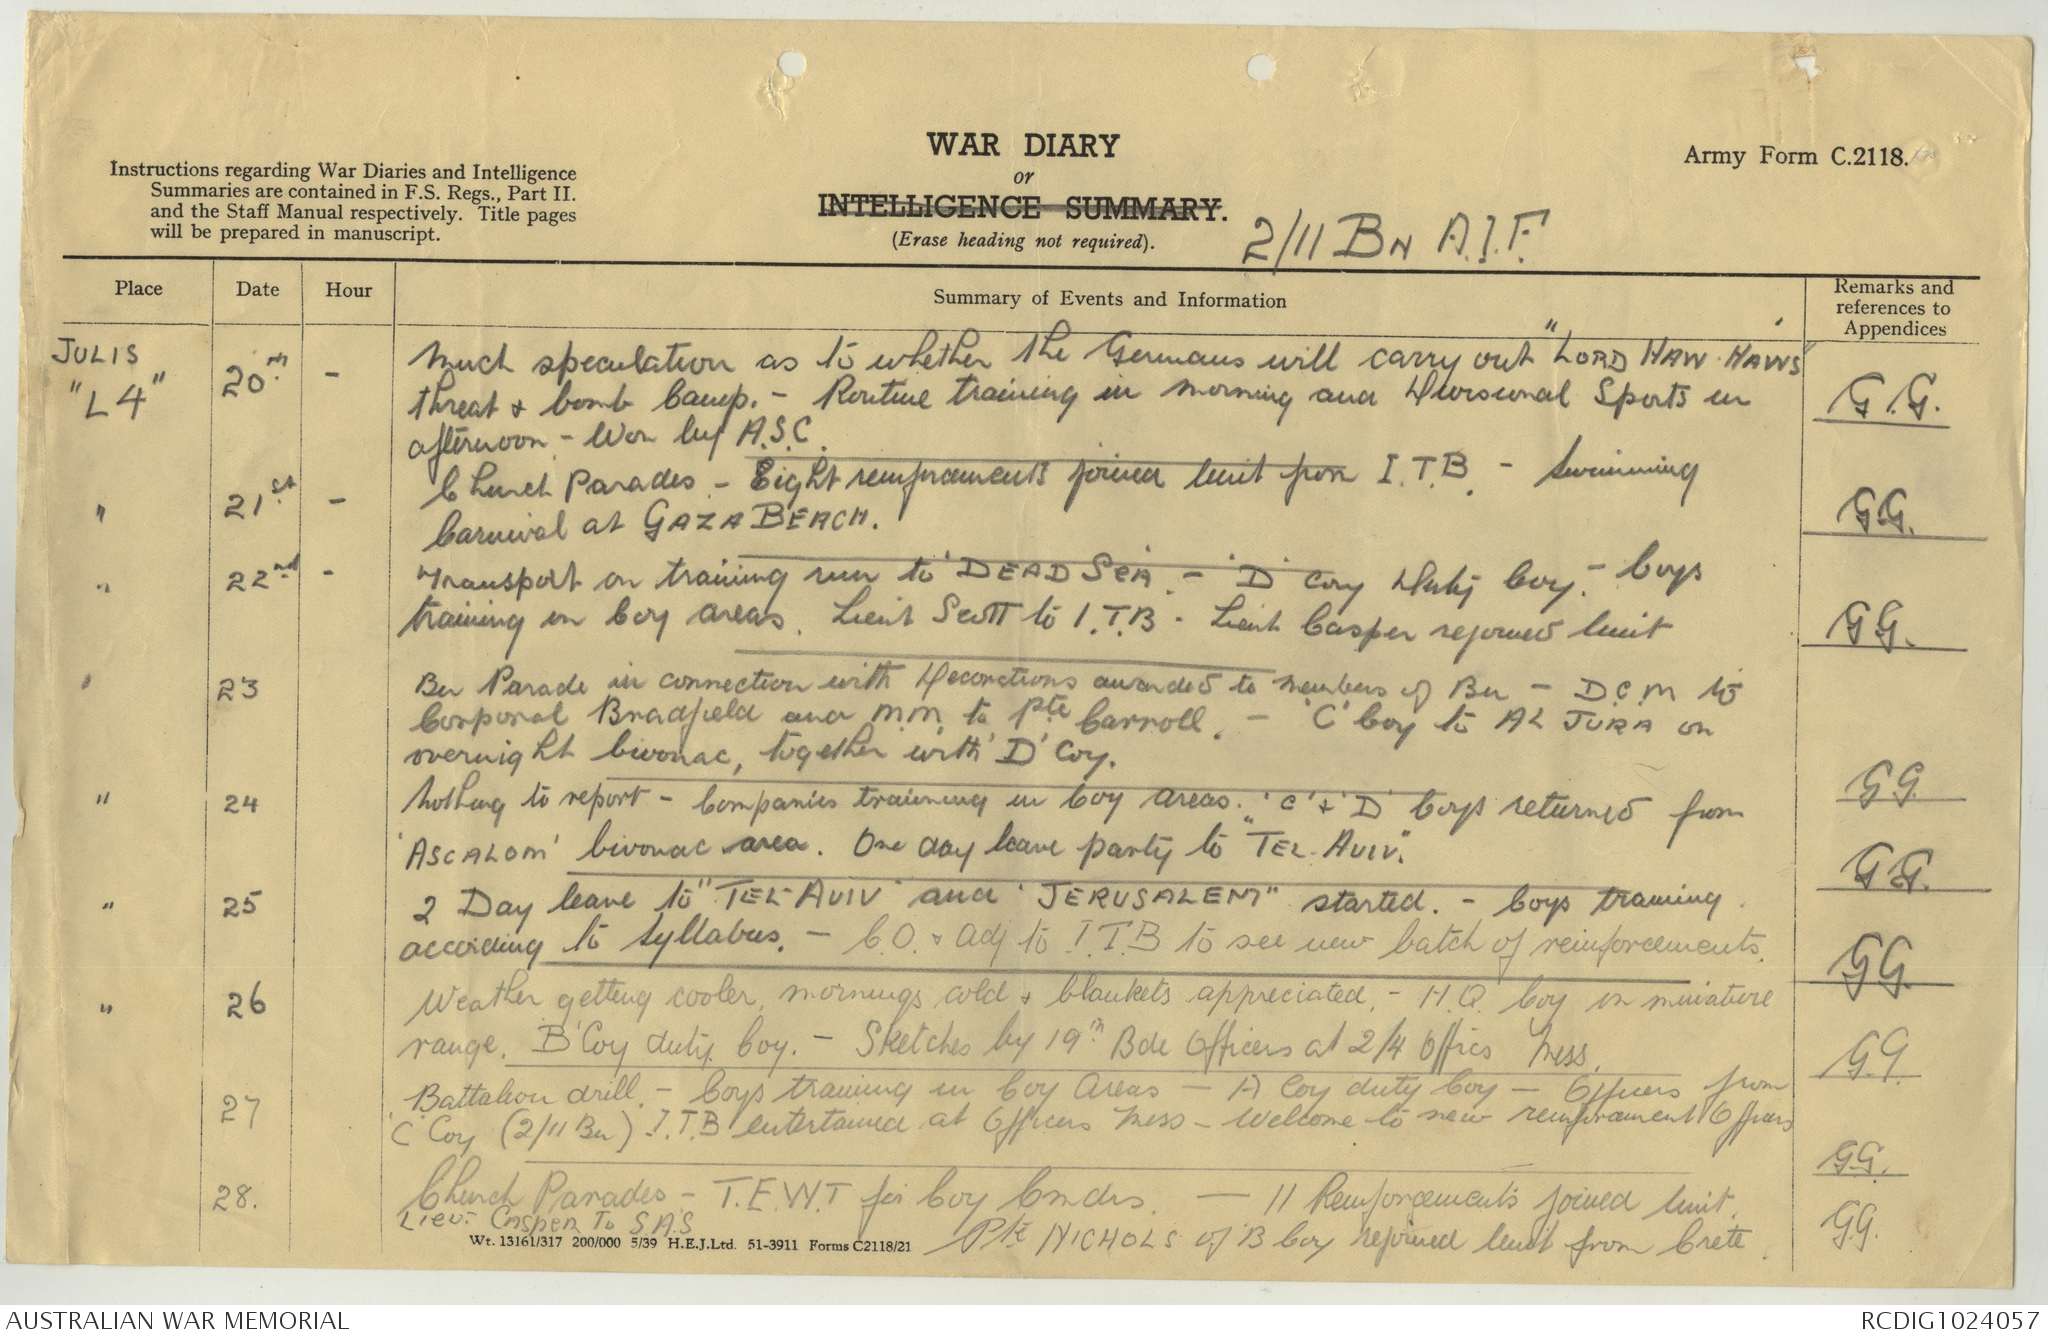 Instructions regarding War Diaries and Intelligence
Summaries are contained in F.S. Regs., Part II.
and the Staff Manual respectively. Title pages
will be prepared in manuscript.
WAR DIARY
or
INTELLIGENCE SUMMARY.
(Erase heading not required).
2/11 BN A.I.F.
Army Form C.2118.
Place Date Hour Summary of Events and Information Remarks and references to Appendices
JULIS 20th - Much speculation as to whether the Germans will carry out "LORD HAW-HAWS"
"L4" threat & bomb Camp. - Routine training in morning and Divisional Sports in G.G.
afternoon - Won by A.S.C.
" 21st - Church Parades - Eight reinforcements joined unit from I.T.B. - Swimming
Carnival at GAZA BEACH. G.G.
" 22nd - Transport on training run to 'DEAD SEA'. - 'D' Coy Duty Coy. - Coys
training in Coy areas. Lieut Scott to I.T.B - Lieut Casper rejoined unit GG.
" 23 Bn Parade in connection with Decorations awarded to members of Bn - D.C.M to
Corporal Bradfield and M.M. to Pte Carroll. - 'C' Coy to AL JURA on
overnight bivouac, together with 'D' Coy. GG.
" 24 Nothing to report - Companies training in Coy areas. 'C' & 'D' Coys returned from
'ASCALOM' bivouac area. One day leave party to "TEL-AVIV". GG.
" 25 2 Day leave to "TEL-AVIV" and "JERUSALEM" started. - Coys training
according to syllabus. - C.O. & Adj to I.T.B to see new batch of reinforcements. GG.
" 26 Weather getting cooler, mornings cold & blankets appreciated. - H.Q. Coy on miniature
range. 'B' Coy duty Coy. - Sketches by 19th Bde Officers at 2/4 Offrs Mess. G.G.
27 Battalion drill. - Coys training in Coy Areas - A Coy duty Coy - Officers from
'C' Coy (2/11 Bn) I.T.B entertained at Officers Mess - Welcome to new reinforcement Officers GG.
28. Church Parades - T.E.W.T for Coy Cmdrs. - 11 Reinforcements joined unit.
Lieut Casper to S.A.S Pte NICHOLS of B Coy rejoined unit from Crete. GG.
Wt. 13161/317 200/000 5/39 H.E.J.Ltd. 51-3911 Forms C2118/21
AUSTRALIAN WAR MEMORIAL RCDIG1024057